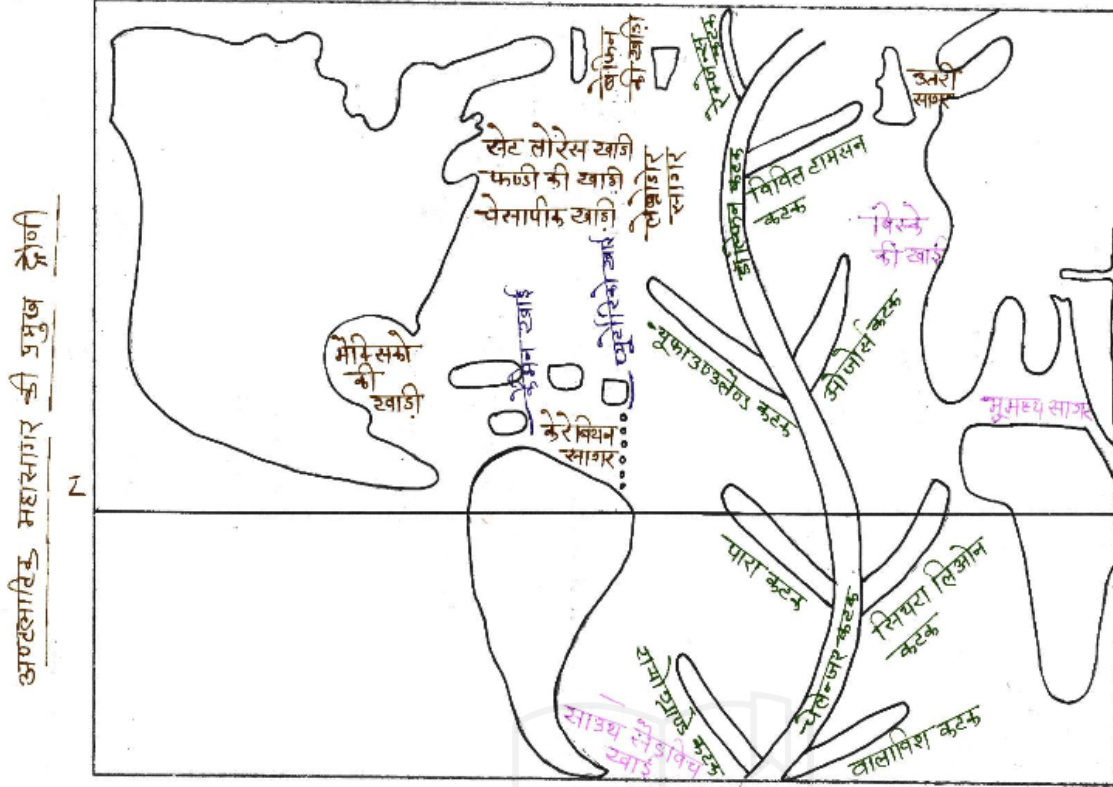 अण्टलाटिक महासागर की प्रमुख द्रोणी
बेफिन
की खाडी
रेक्जेन्स कटक
उत्तरी
सागर
सेट लोरेस खाडी
फण्डी की खाडी
चेसापीक खाडी
लेब्राडोर
सागर
डाल्फिन कटक
विविल टामसन
कटक
बिस्के
की खाई
केमन खाई
प्यूर्टोरिको खाई
मेक्सिको
की
खाडी
केरेबियन
सागर
न्यूफाउण्डलेण्ड कटक
ओजोर्स कटक
भूमध्य सागर
पारा कटक
सियरा लिओन
कटक
चेलेन्जर कटक
रायो ग्राण्डे कटक
साउथ सेंडविच
खाई
वालाविश कटक